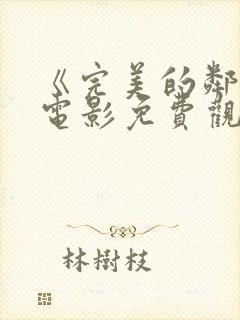 《完美的鄰
電影免費觀
林樹枝